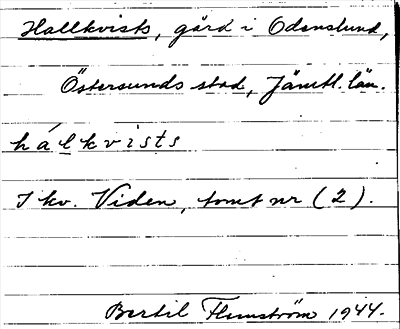 Hallkvists, gård i Odenslund,
Östersunds stad, Jämtl. län.
hálkvists
I kv. Viden, tomt nr (2).
Bertil Flemström 1944.